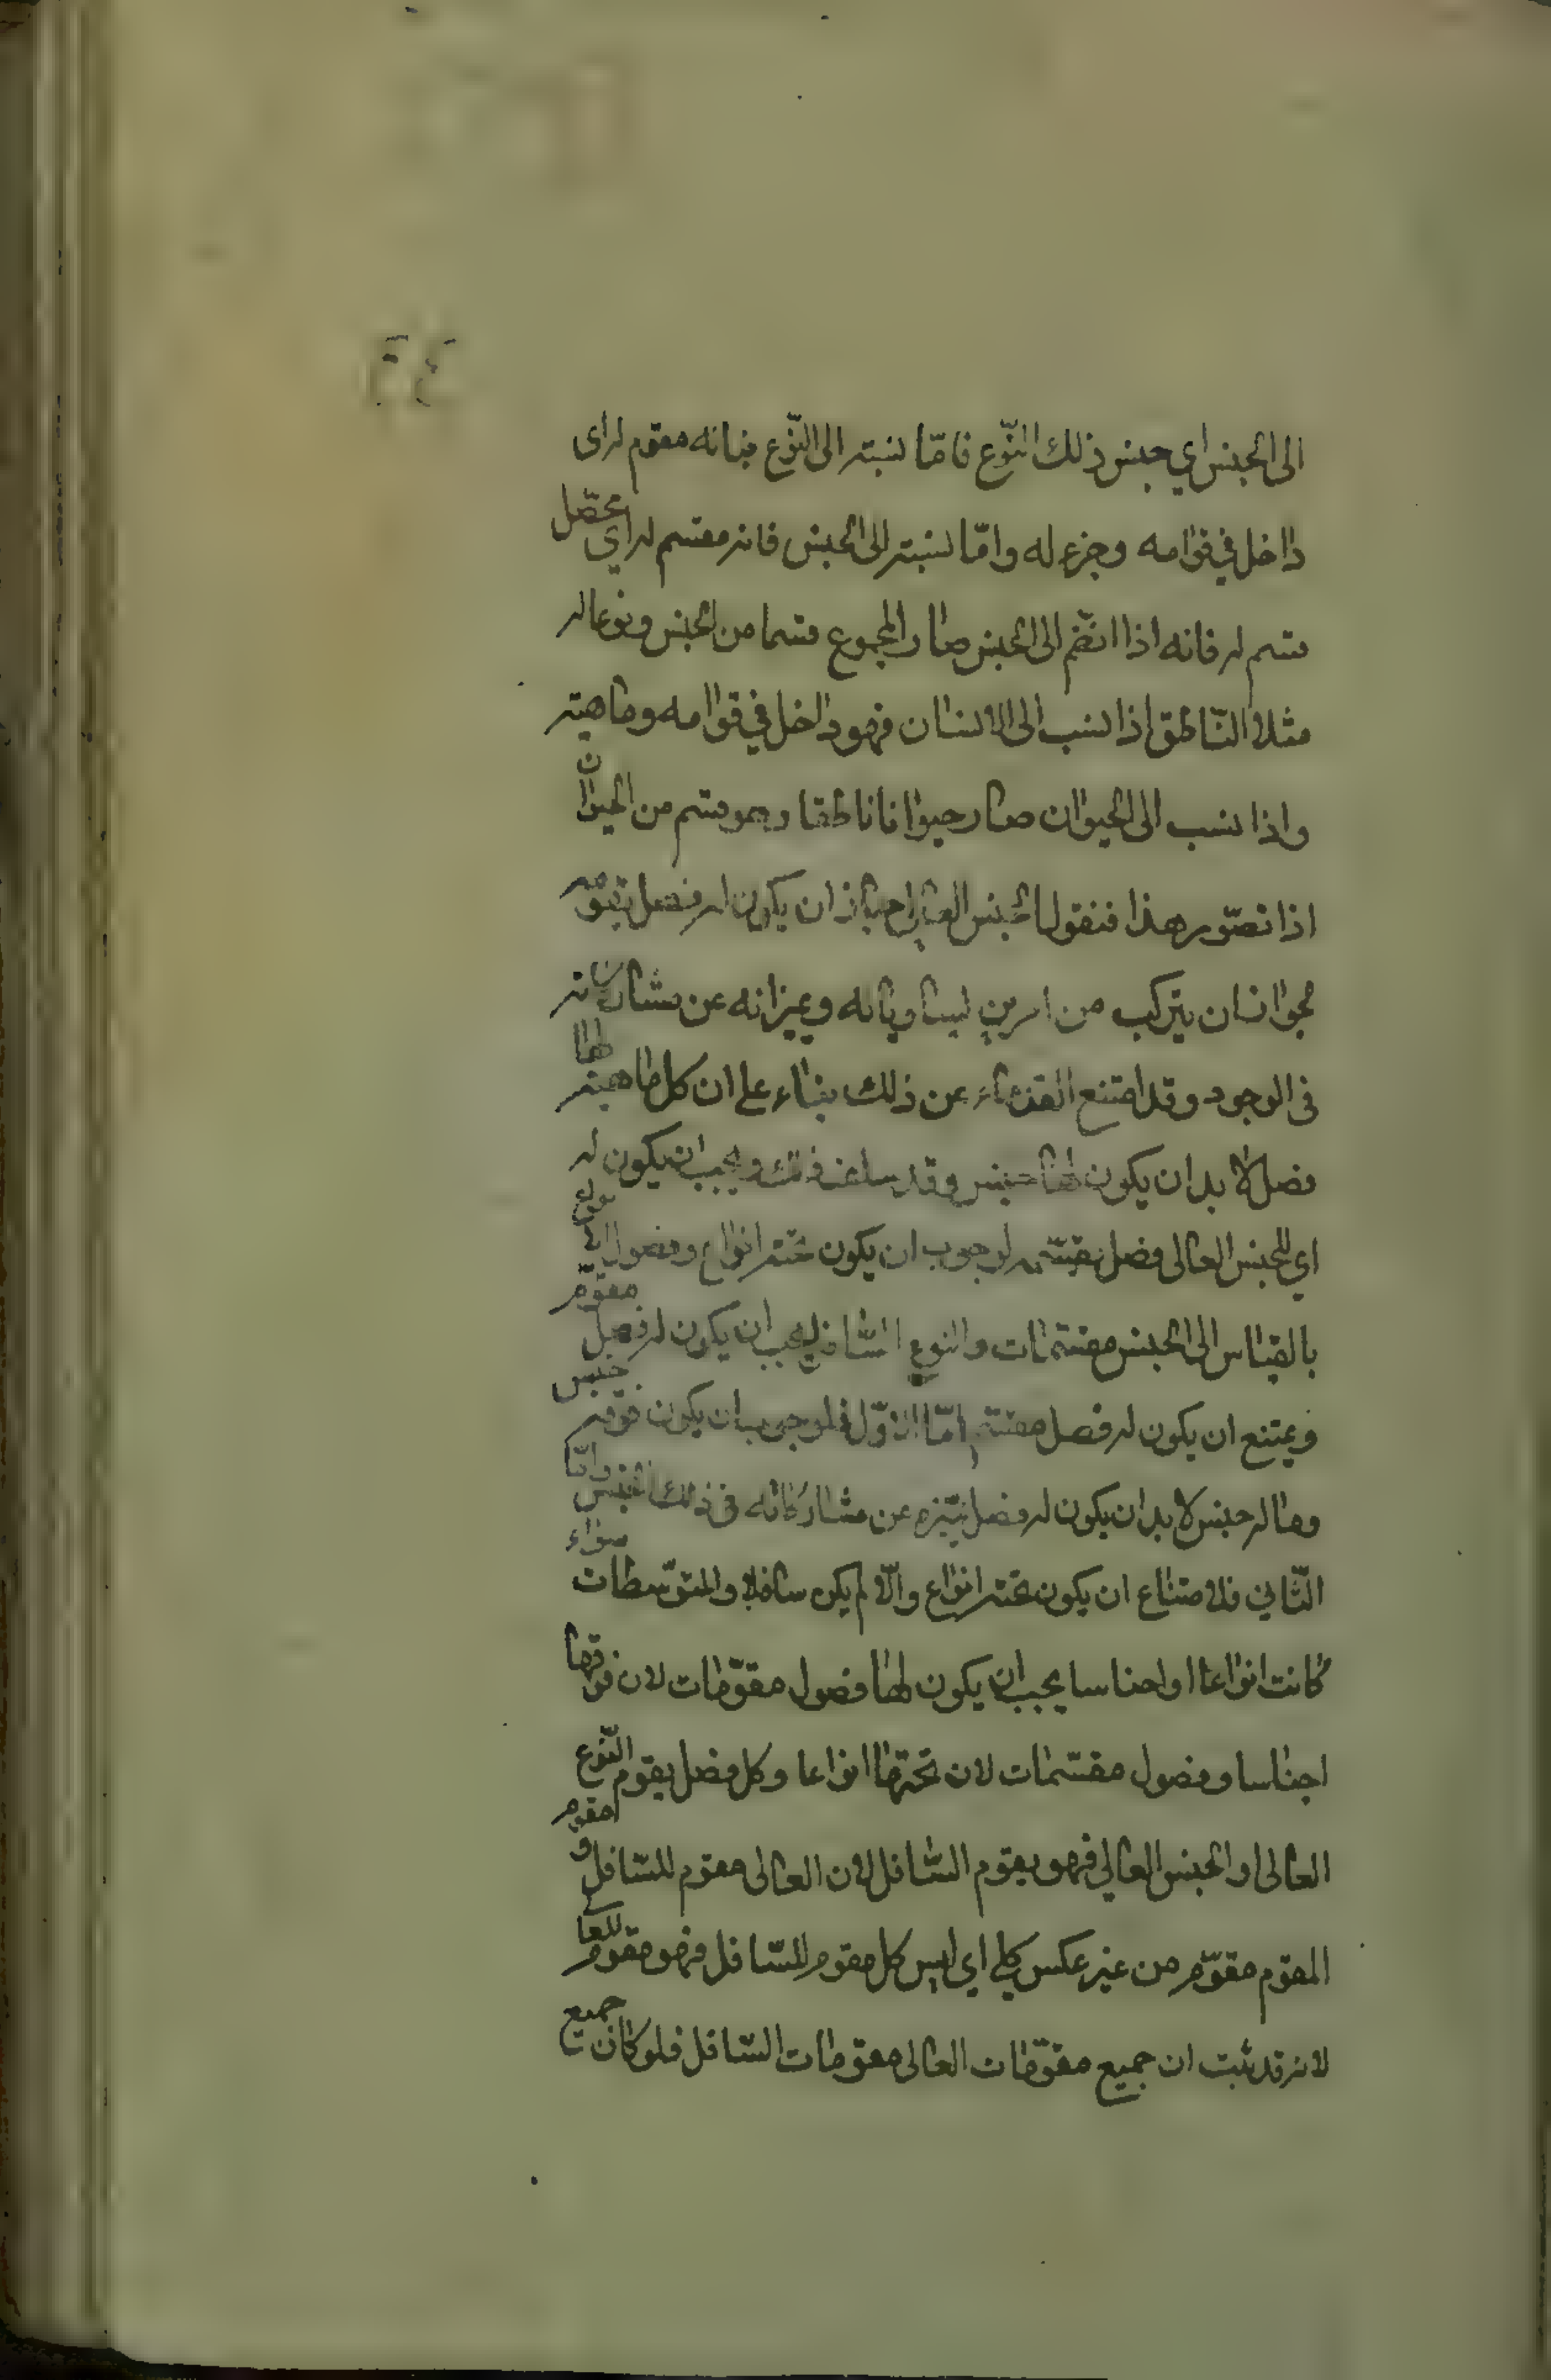 الى الجنس اي جنس ذلك النّوع فامّا نسبته الى النّوع فبانه مقوم له اى
داخل فى قوامه وجزء له وامّا نسبته الى الجنس فانه مقسم له اي محصّل
قسم له فانه اذا انضّم الى الجنس صار المجموع قسما من الجنس ونوعا له
مثلا النّاطق اذا نسب الى الانسان فهو داخل في قوامه وماهيته
واذا نسب الى الحيوان صار حيوانا ناطقا وهو قسم من الحيوان
اذا تصّور هذا فنقول الجنس العالى جاز ان يكون له فصل يقومه
لجواز ان يتركب من امرين يساويانه ويميزانه عن مشاركاته
فى الوجود وقد امتنع القدماء عن ذلك بناء على ان كل ماهية لها
فصل لا بد ان يكون لها جنس وقد سلف ذلك ويجب ان يكون له
اي للجنس العالى فصل يقسّمه لوجوب ان يكون تحته انواع وفصول الانواع
بالقياس الى الجنس مقسّمات والنوع السّافل يجب ان يكون له فصل مقوّم
ويمتنع ان يكون له فصل مقسّم امّا الاوّل فلوجوب ان يكون فوقه جنس
وما له جنس لا بد ان يكون له فصل يميّزه عن مشاركاته فى ذلك الجنس وامّا
الثّاني فلامتناع ان يكون تحته انواع والّا لم يكن سافلا والمتوّسطات سواء
كانت انواعا او اجناسا يجب ان يكون لها فصول مقوّمات لان فوقها
اجناسا وفصول مقسّمات لان تحتها انواعا وكل فصل يقوم النّوع
العالى او الجنس العالي فهو يقوم السّافل لان العالى مقوم للسّافل ومقوم
المقوم مقوّم من غير عكس كلي اي ليس كل مقوم للسّافل فهو مقوم للعالي
لانه قد ثبت ان جميع مقوّمات العالى مقومات السّافل فلو كان جميع